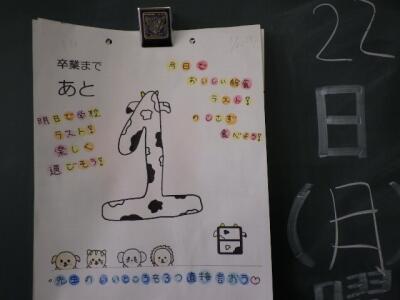 卒業まで
あと
1
今日で
おいしい給食
ラスト!
のこさず
食べよう!
明日で学校
ラスト!
楽しく
過ごそう!
22
日
(月